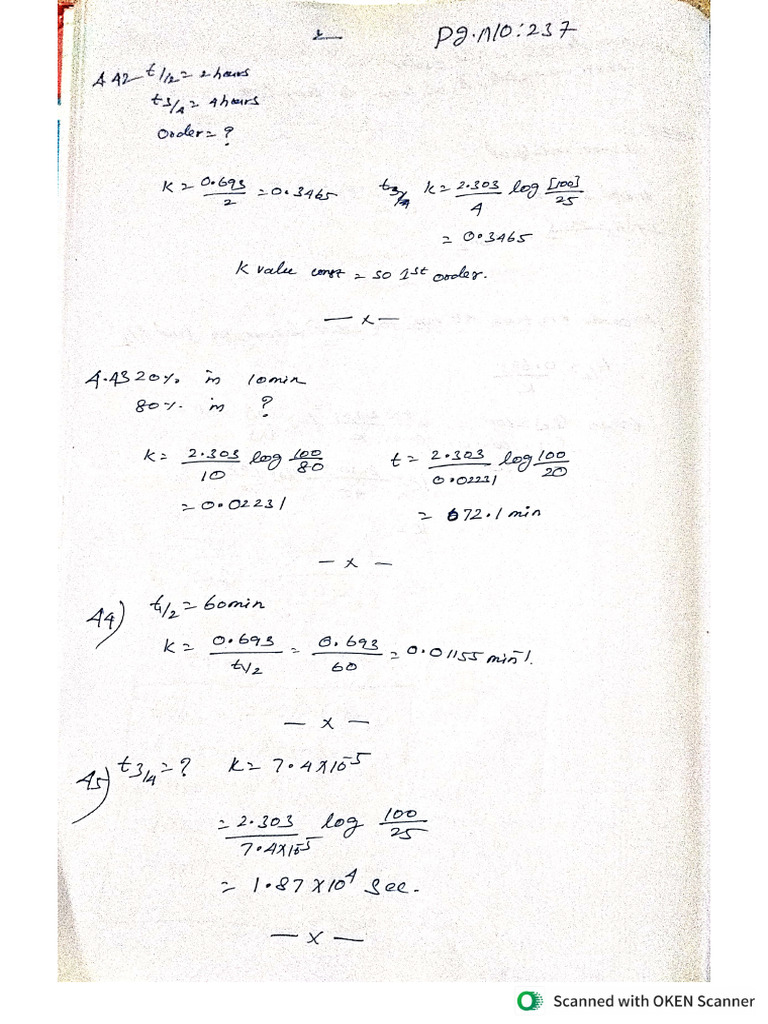 2
Pg.NO:237
442 t1/2 = 2 hours
t3/4 = 4 hours
Order = ?
K = 0.693/2 = 0.3465    t3/4 K = 2.303/4 log [100]/25
= 0.3465
K value const = so 1st order.
— x —
4.43 20% in 10min
80% in ?
K = 2.303/10 log 100/80    t = 2.303/0.02231 log 100/20
= 0.02231    = 72.1 min
— x —
44) t1/2 = 60min
K = 0.693/t1/2 = 0.693/60 = 0.01155 min⁻¹.
— x —
45) t3/4 = ?  K = 7.4×10⁻⁵
= 2.303/7.4×10⁻⁵ log 100/25
= 1.87 ×10⁴ Sec.
— x —
Scanned with OKEN Scanner